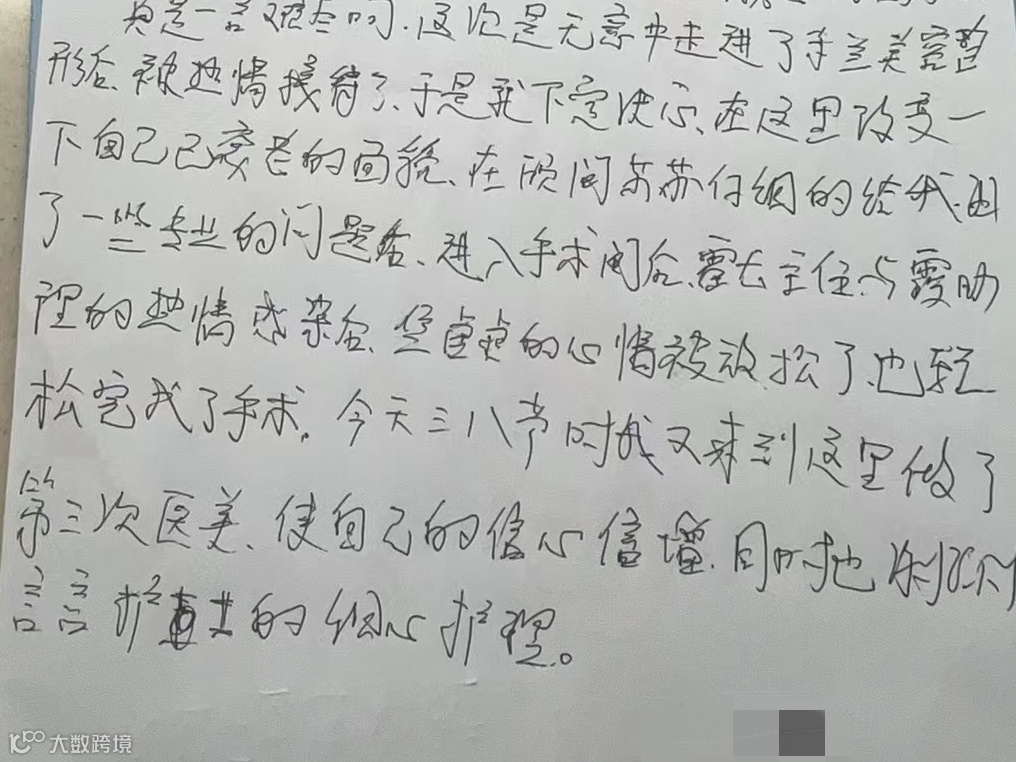 真是一言难尽啊.这次是无意中走进了手兰美容整
形后、被热情接待了、于是我下定决心、在这里改变一
下自己已衰老的面貌、在顾问苏苏仔细的给我
了一些专业的问题后、进入手术间后、霍主任、与霞助
理的热情感染后、的心情被放松了、也轻
松完成了手术。今天三八节时我又来到这里做了
第三次医美、使自己的信心倍增、同时也
言言护士的细心护理。
大数跨境